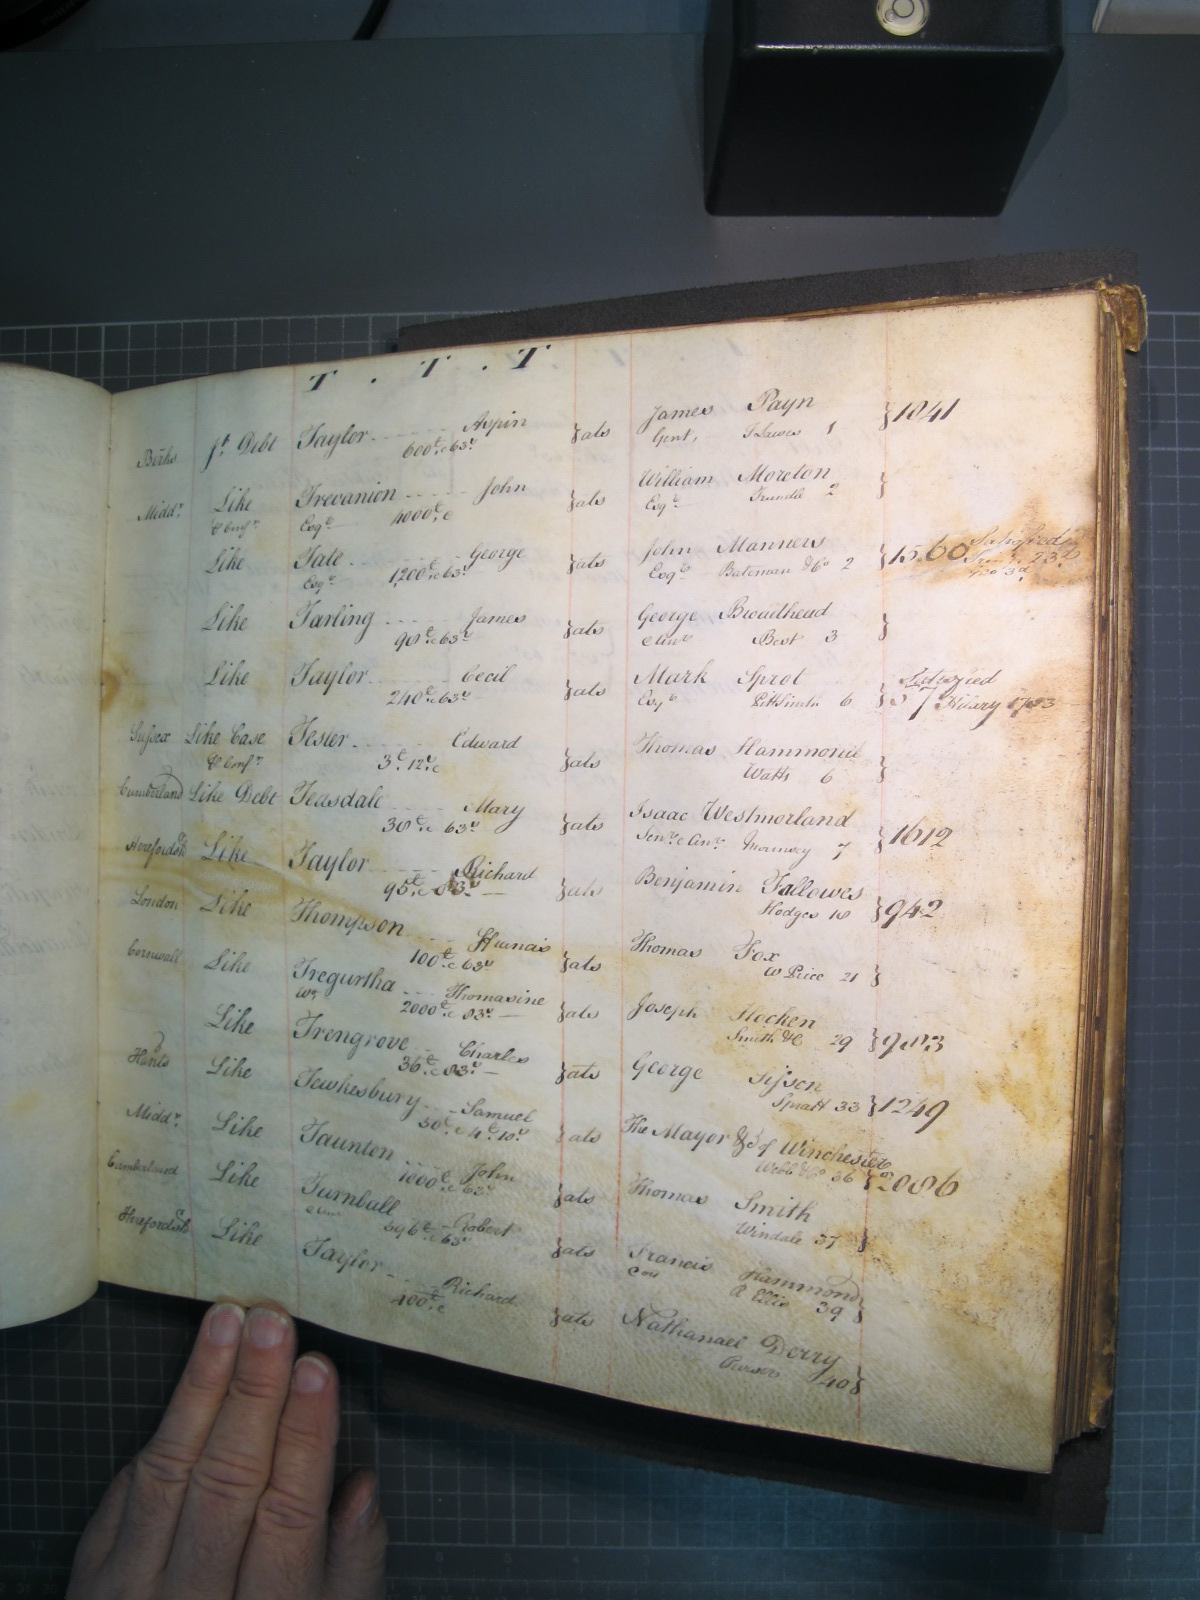 T . T . T
Berks Jt. Debt Taylor Aspin }ats James Payn }1841
600£.. 63s Gent, T Lawes 1
Midd.x Like Trevanion John }ats William Moreton }
& Conf.n Esq.r 4000£. Trundle 2
Esq.r
Like Tate George }ats John Manners }1560 Satisfied
Esq.r 1,200£.. 63s Esq.r Bateman & Co 2
Like Tarling James }ats George Broadhead }
90£.. 63s Best 3
Like Taylor Cecil }ats Mark Sprot Satisfied
240£.. 63s Esq.r 6 }57 Hilary 1783
Sussex Like Case Tester Edward }ats Thomas Hammond }
& Conf.n 3£.. 12s. Watts 6
Cumberland Like Debt Teasdale Mary }ats Isaac Westmorland }1612
30£.. 63s Mounsey 7
Herefordsh Like Taylor Richard }ats Benjamin Fallowes }942
95£.. 83s Hodges 10
London Like Thompson Francis }ats Thomas Fox }
100£.. 63s W Price 21
Cornwall Like Tregurtha Thomasine }ats Joseph Hocken }983
W.o 2000£.. 83s Smith & C 29
Like Trengrove Charles }ats George Sisson }1249
36£.. 83s Spratt 33
Hants Like Tewkesbury Samuel }ats The Mayor &c of Winchester }2086
50£.. 4£. 10s Webb & Co 36
Midd.x Like Taunton John }ats Thomas Smith }
1000£.. 63s Windale 37
Cumberland Like Turnball Robert }ats Francis Hammond }
596£.. 63s R Ellis 39
Herefordsh Like Taylor Richard }ats Nathanael Derry }
400£. 40